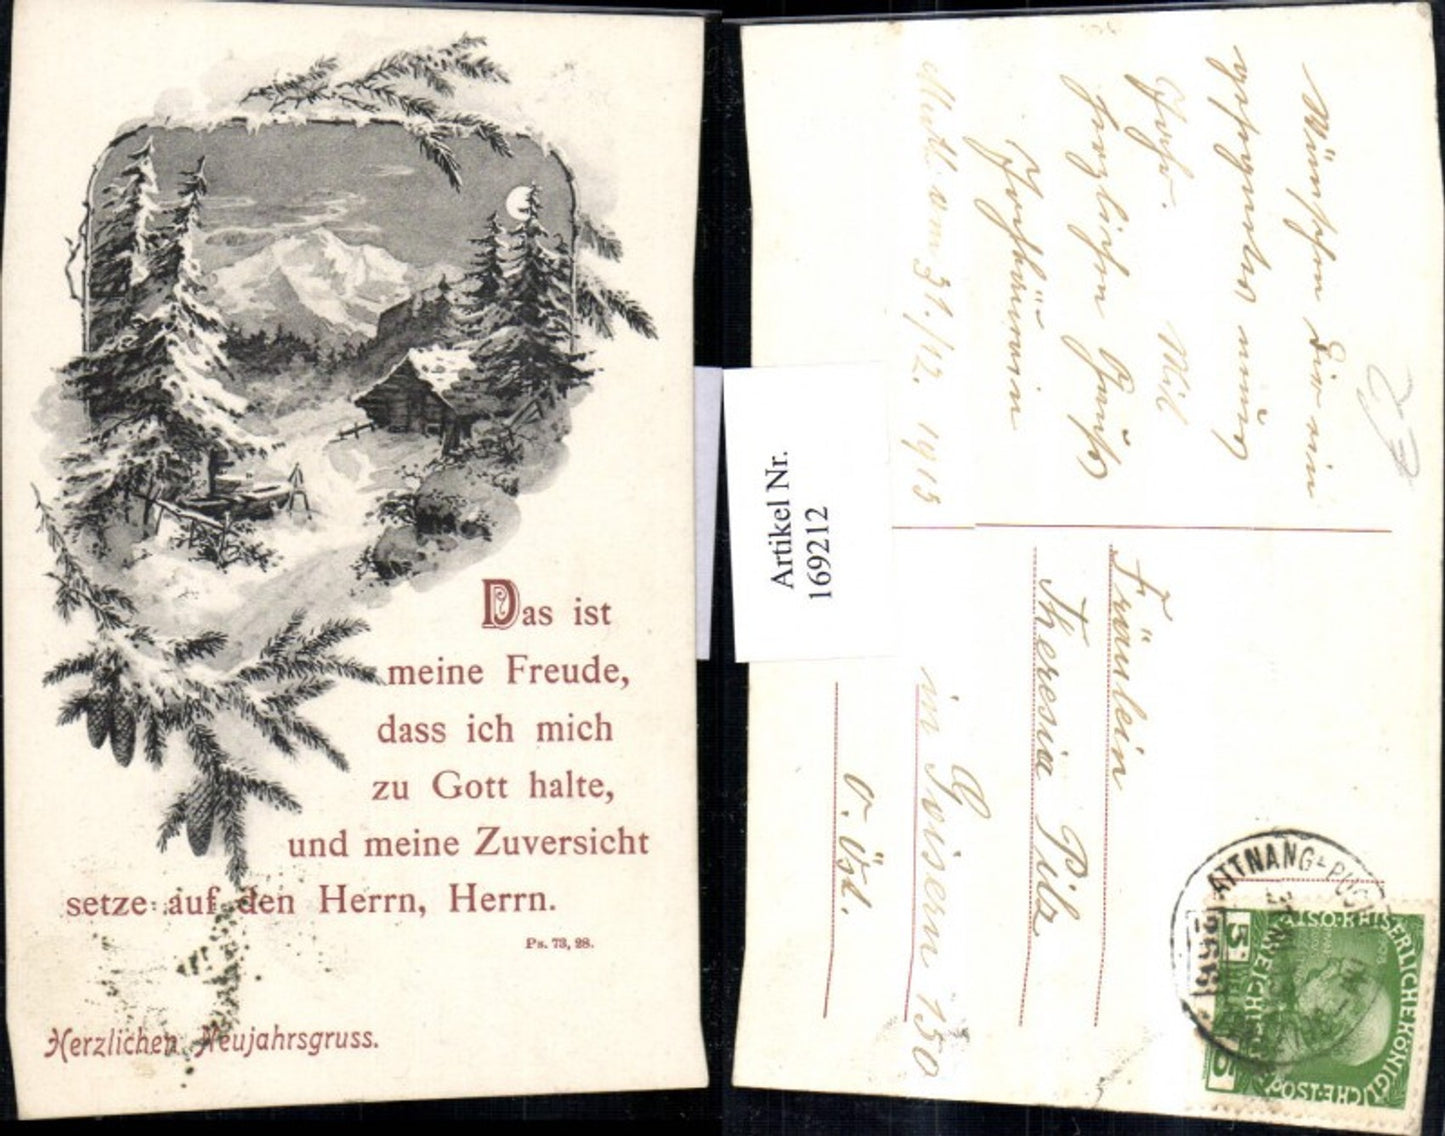 Das ist
meine Freude,
dass ich mich
zu Gott halte,
und meine Zuversicht
setze auf den Herrn, Herrn.
Ps. 73, 28.
Herzlichen Neujahrsgruss.
Artikel Nr.
169212
Wünschen Dir ein
gesegnetes neues
Jahr. Mit
herzlichen Grüß
31./12. 1913
Fräulein
Theresia Pilz
in Goisern 150
O. Öst.
ATTNANG-PUCH
KAISERLICHE KÖNIGLICHE
5
5